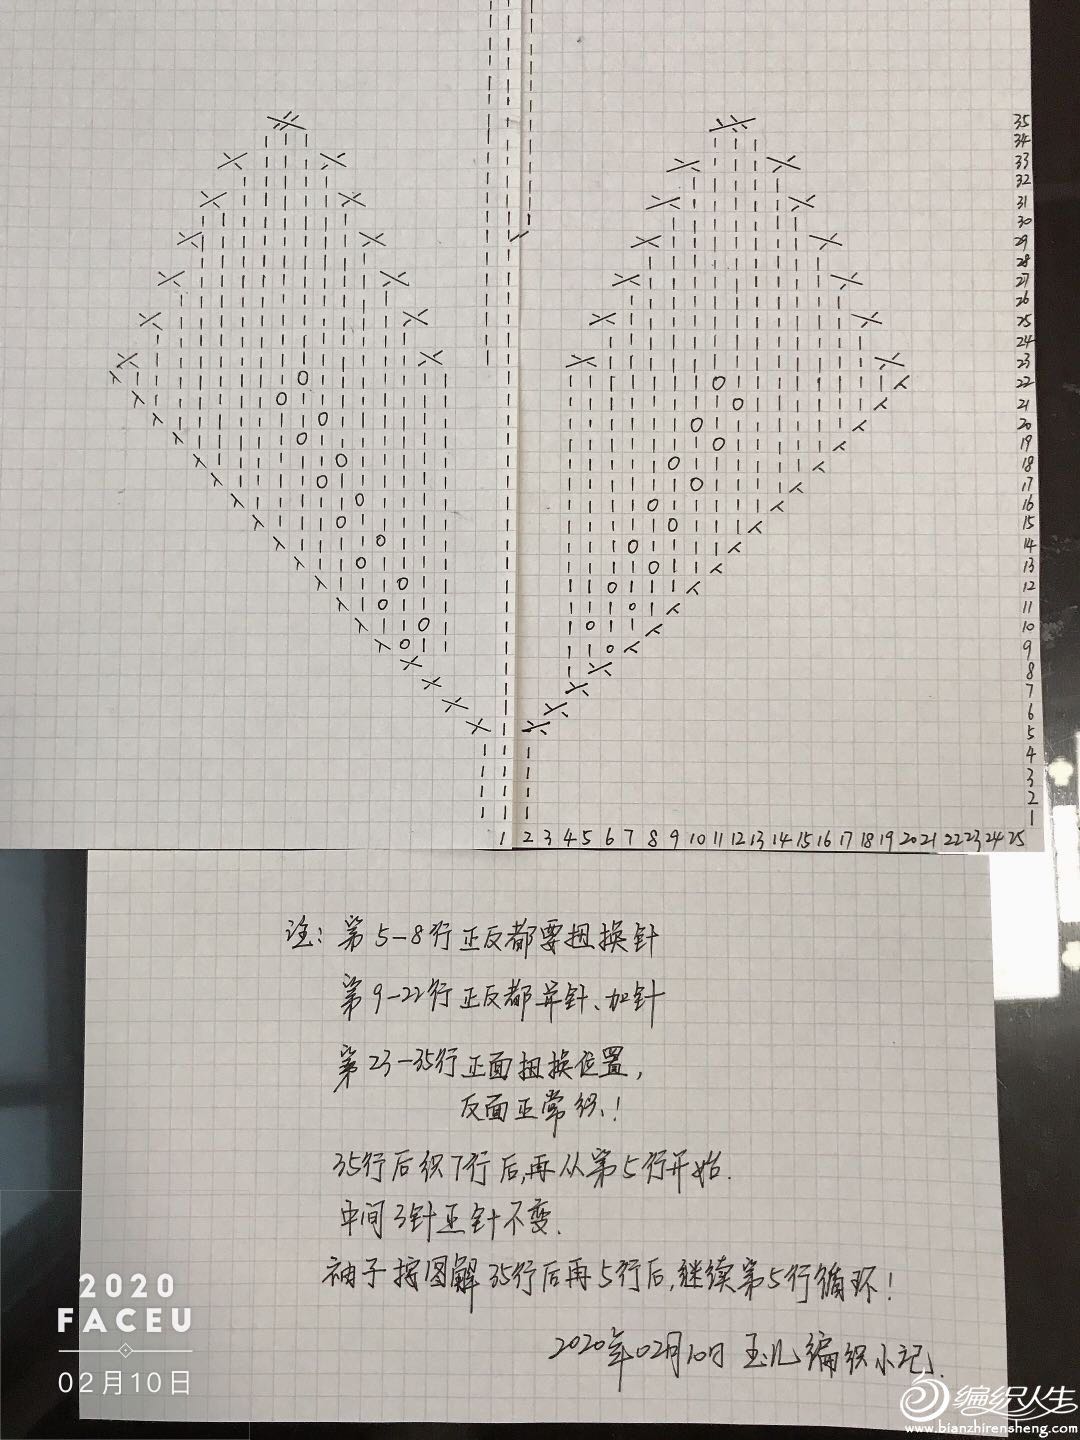 35
34
33
32
31
30
29
28
27
26
25
24
23
22
21
20
19
18
17
16
15
14
13
12
11
10
9
8
7
6
5
4
3
2
1
1 2 3 4 5 6 7 8 9 10 11 12 13 14 15 16 17 18 19 20 21 22 23 24 25
注：第5-8行正反都要扭换针
第9-22行正反都并针、加针
第23-35行正面扭换位置，
反面正常织！
35行后织7行后,再从第5行开始.
中间3针正针不变.
袖子按图解35行后再5行后,继续第5行循环!
2020年02月10日 玉儿编织小记.
2020
FACEU
02月10日
编织人生
www.bianzhirensheng.com